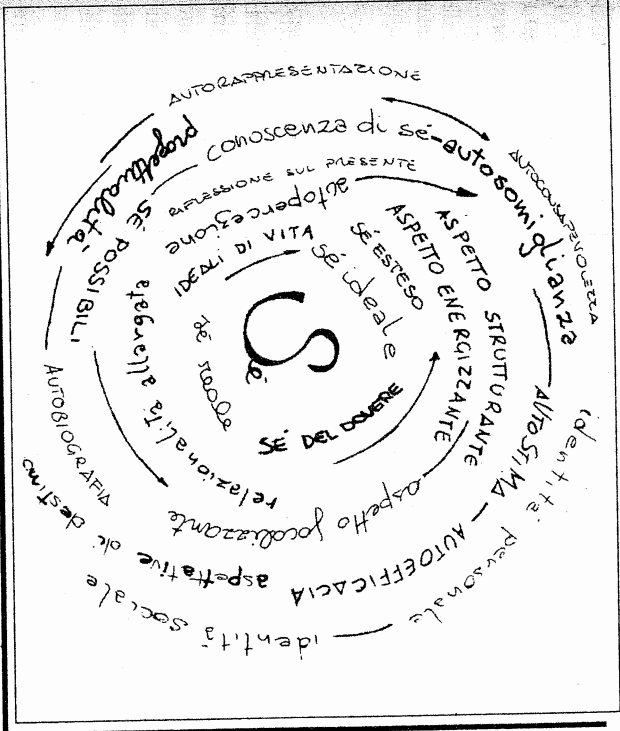 AUTORAPPRESENTAZIONE
AUTOCONSAPEVOLEZZA
identità personale
identità sociale
AUTOBIOGRAFIA
progettualità
conoscenza di sé-autosomiglianza
AUTOSTIMA
AUTOEFFICACIA
aspettative di destino
SÉ POSSIBILI
RIFLESSIONE SUL PRESENTE
autopercezione
ASPETTO STRUTTURANTE
ASPETTO ENERGIZZANTE
aspetto focalizzante
relazionalità allargata
IDEALI DI VITA
SÉ ESTESO
sé ideale
SÉ DEL DOVERE
sé reale
Sé